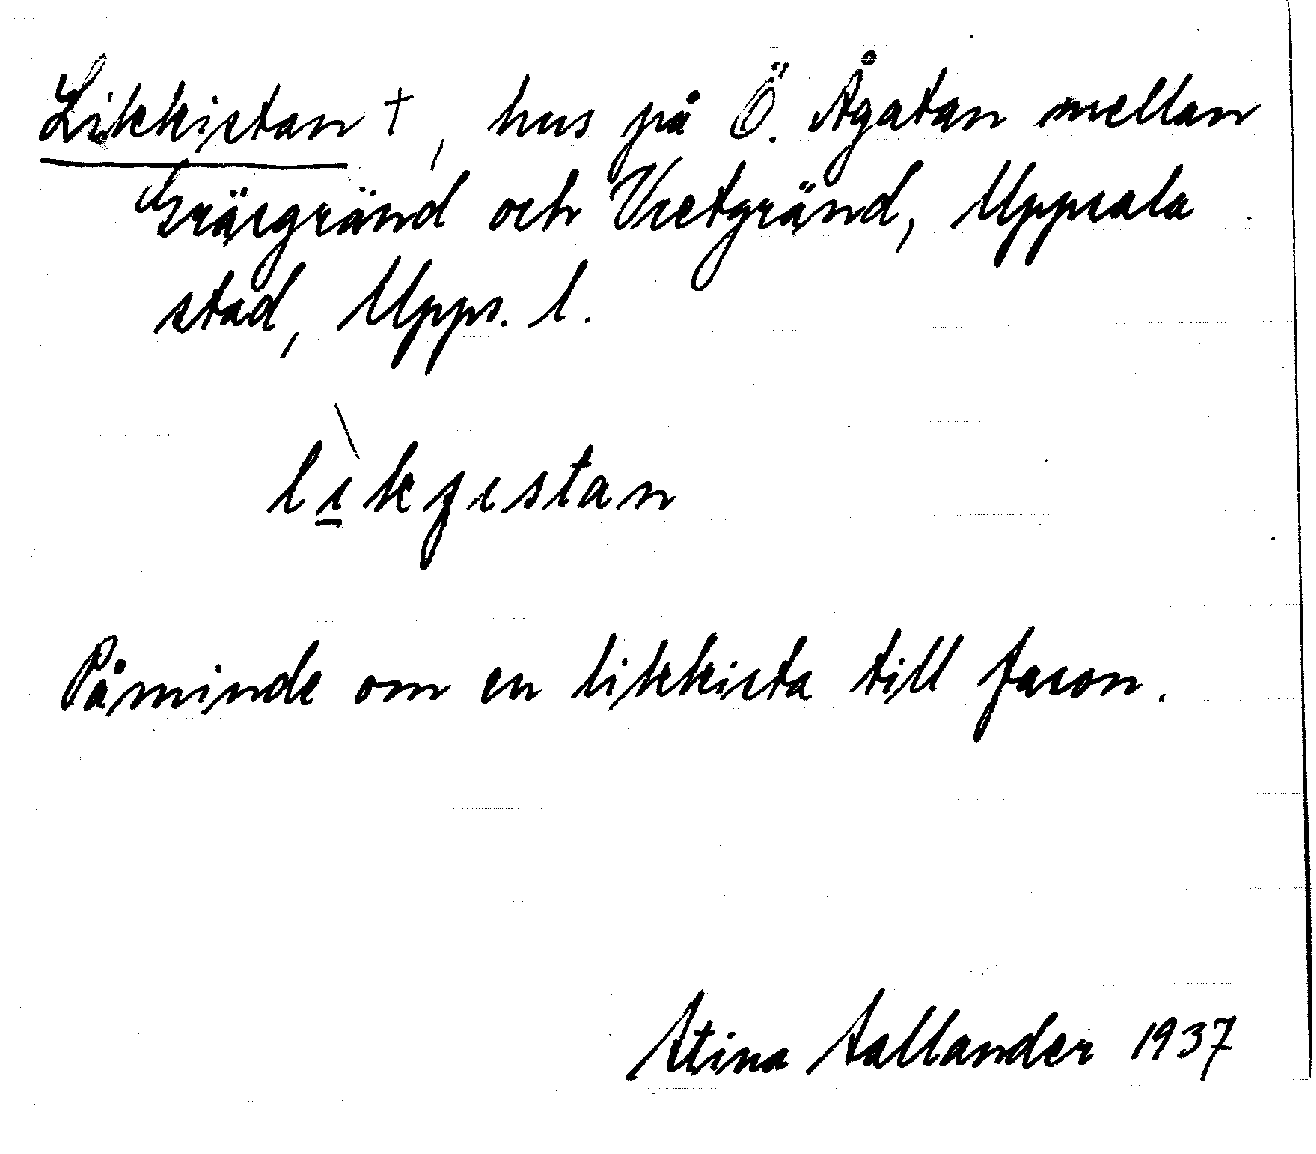 Likkistan †, hus på Ö. Ågatan mellan
Gräsgränd och Vretgränd, Uppsala
stad, Upps. l.
lìkʒistan
Påminde om en likkista till fason.
Stina 1937